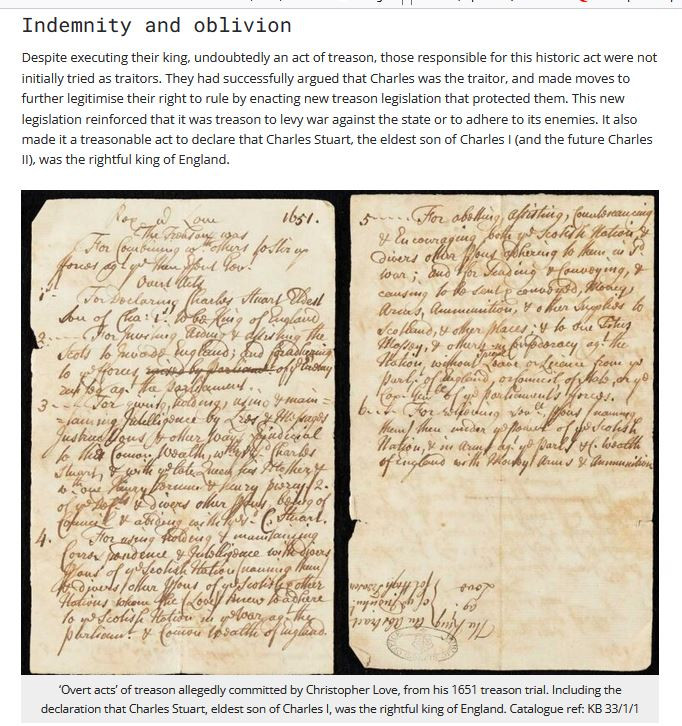 Indemnity and oblivion
Despite executing their king, undoubtedly an act of treason, those responsible for this historic act were not
initially tried as traitors. They had successfully argued that Charles was the traitor, and made moves to
further legitimise their right to rule by enacting new treason legislation that protected them. This new
legislation reinforced that it was treason to levy war against the state or to adhere to its enemies. It also
made it a treasonable act to declare that Charles Stuart, the eldest son of Charles I (and the future Charles
II), was the rightful king of England.
1651.
The Treasons was
For Combining wth others to stir up
forces agt ye then
Overt Acts
1. For Declaring Charles Stuart Eldest
son of Cha: 1st to be King of England
2. For Inviting Aiding & Assisting the
Scots to invade England; and
to ye forces
agt the Parliament
3 For giving, holding, using & main=
=taining Intelligence by & Messages
& other ways
to the Comon Wealth, wth Charles
Stuart, & with ye late Queen his Mother &
& divers other being of
Councel & abiding with ye sd C. Stuart.
4. For using holding & maintaining
Correspondence & Intelligence with divers
of ye Scotish Nation (naming them)
& divers other of ye Scotish & other
Nations whom the (Love) knew to adhere
to ye Scotish Nation in ye war agt the
parliamt & Comon Wealth of England.
5 For abetting, assisting, Countenancing
& Encouraging both ye Scotish Nation &
divers other adhering to them in ye
war; and for Sending & Conveying, &
causing to be sent & conveyed, Money,
Arms, Ammunition, & other Supplies to
Scotland, & other places, & to
& others in confederacy agt the
Nation, without Leave or Licence from ye
Parlt of England, or Councel of State, or ye
of ye Parliaments forces.
6. For (naming
them) then under ye power of ye Scotish
Nation & in Arms agt ye Parlt & C. Wealth
of England with Money Arms & Ammunition
The King
agt
Love
'Overt acts' of treason allegedly committed by Christopher Love, from his 1651 treason trial. Including the
declaration that Charles Stuart, eldest son of Charles I, was the rightful king of England. Catalogue ref: KB 33/1/1